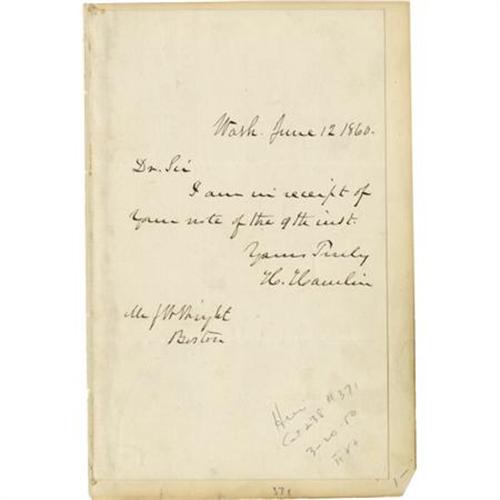 Wash. June 12 1860.
Dr. Sir
I am in receipt of
your note of the 9th inst.
Yours Truly
H. Hamlin
Mr J W Wright
Boston
Cat 238 # 371
3-20-50
371